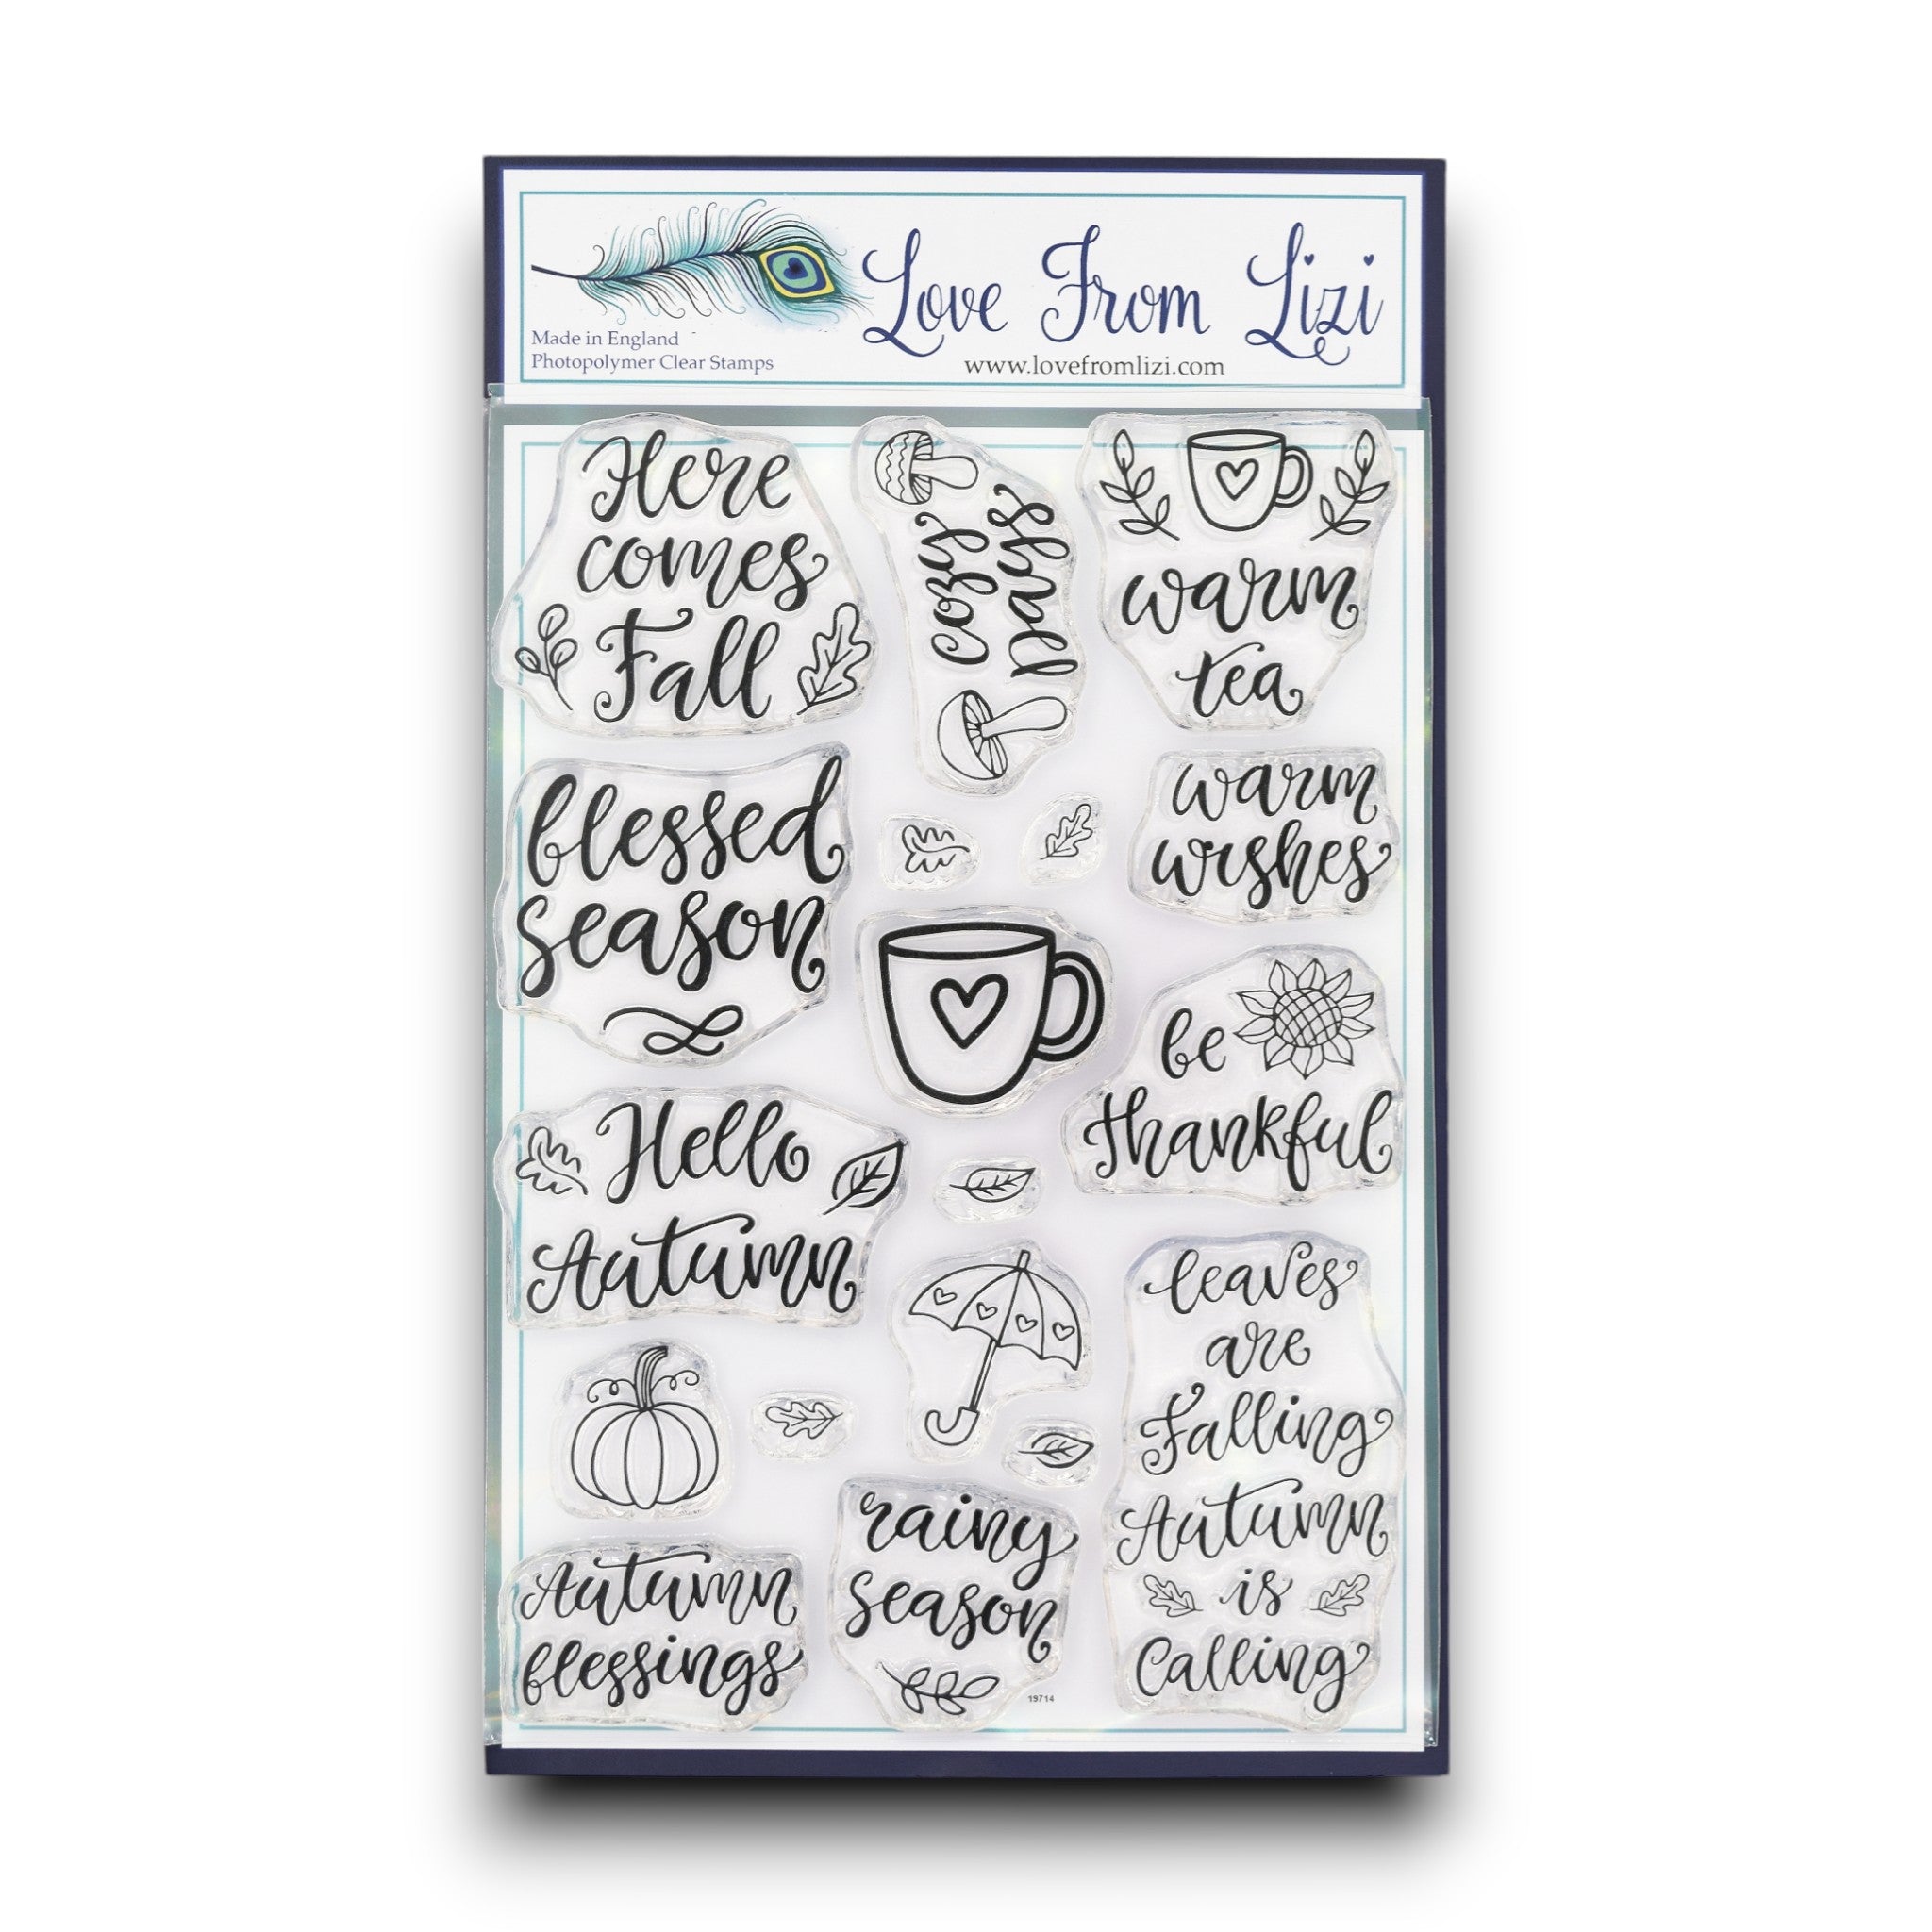 Love From Lizi
Made in England
Photopolymer Clear Stamps
www.lovefromlizi.com
Here
comes
Fall
cozy
shpaej
warm
tea
blessed
season
warm
wishes
be
thankful
Hello
Autumn
leaves
are
Falling
Autumn
is
Calling
rainy
season
Autumn
blessings
19714